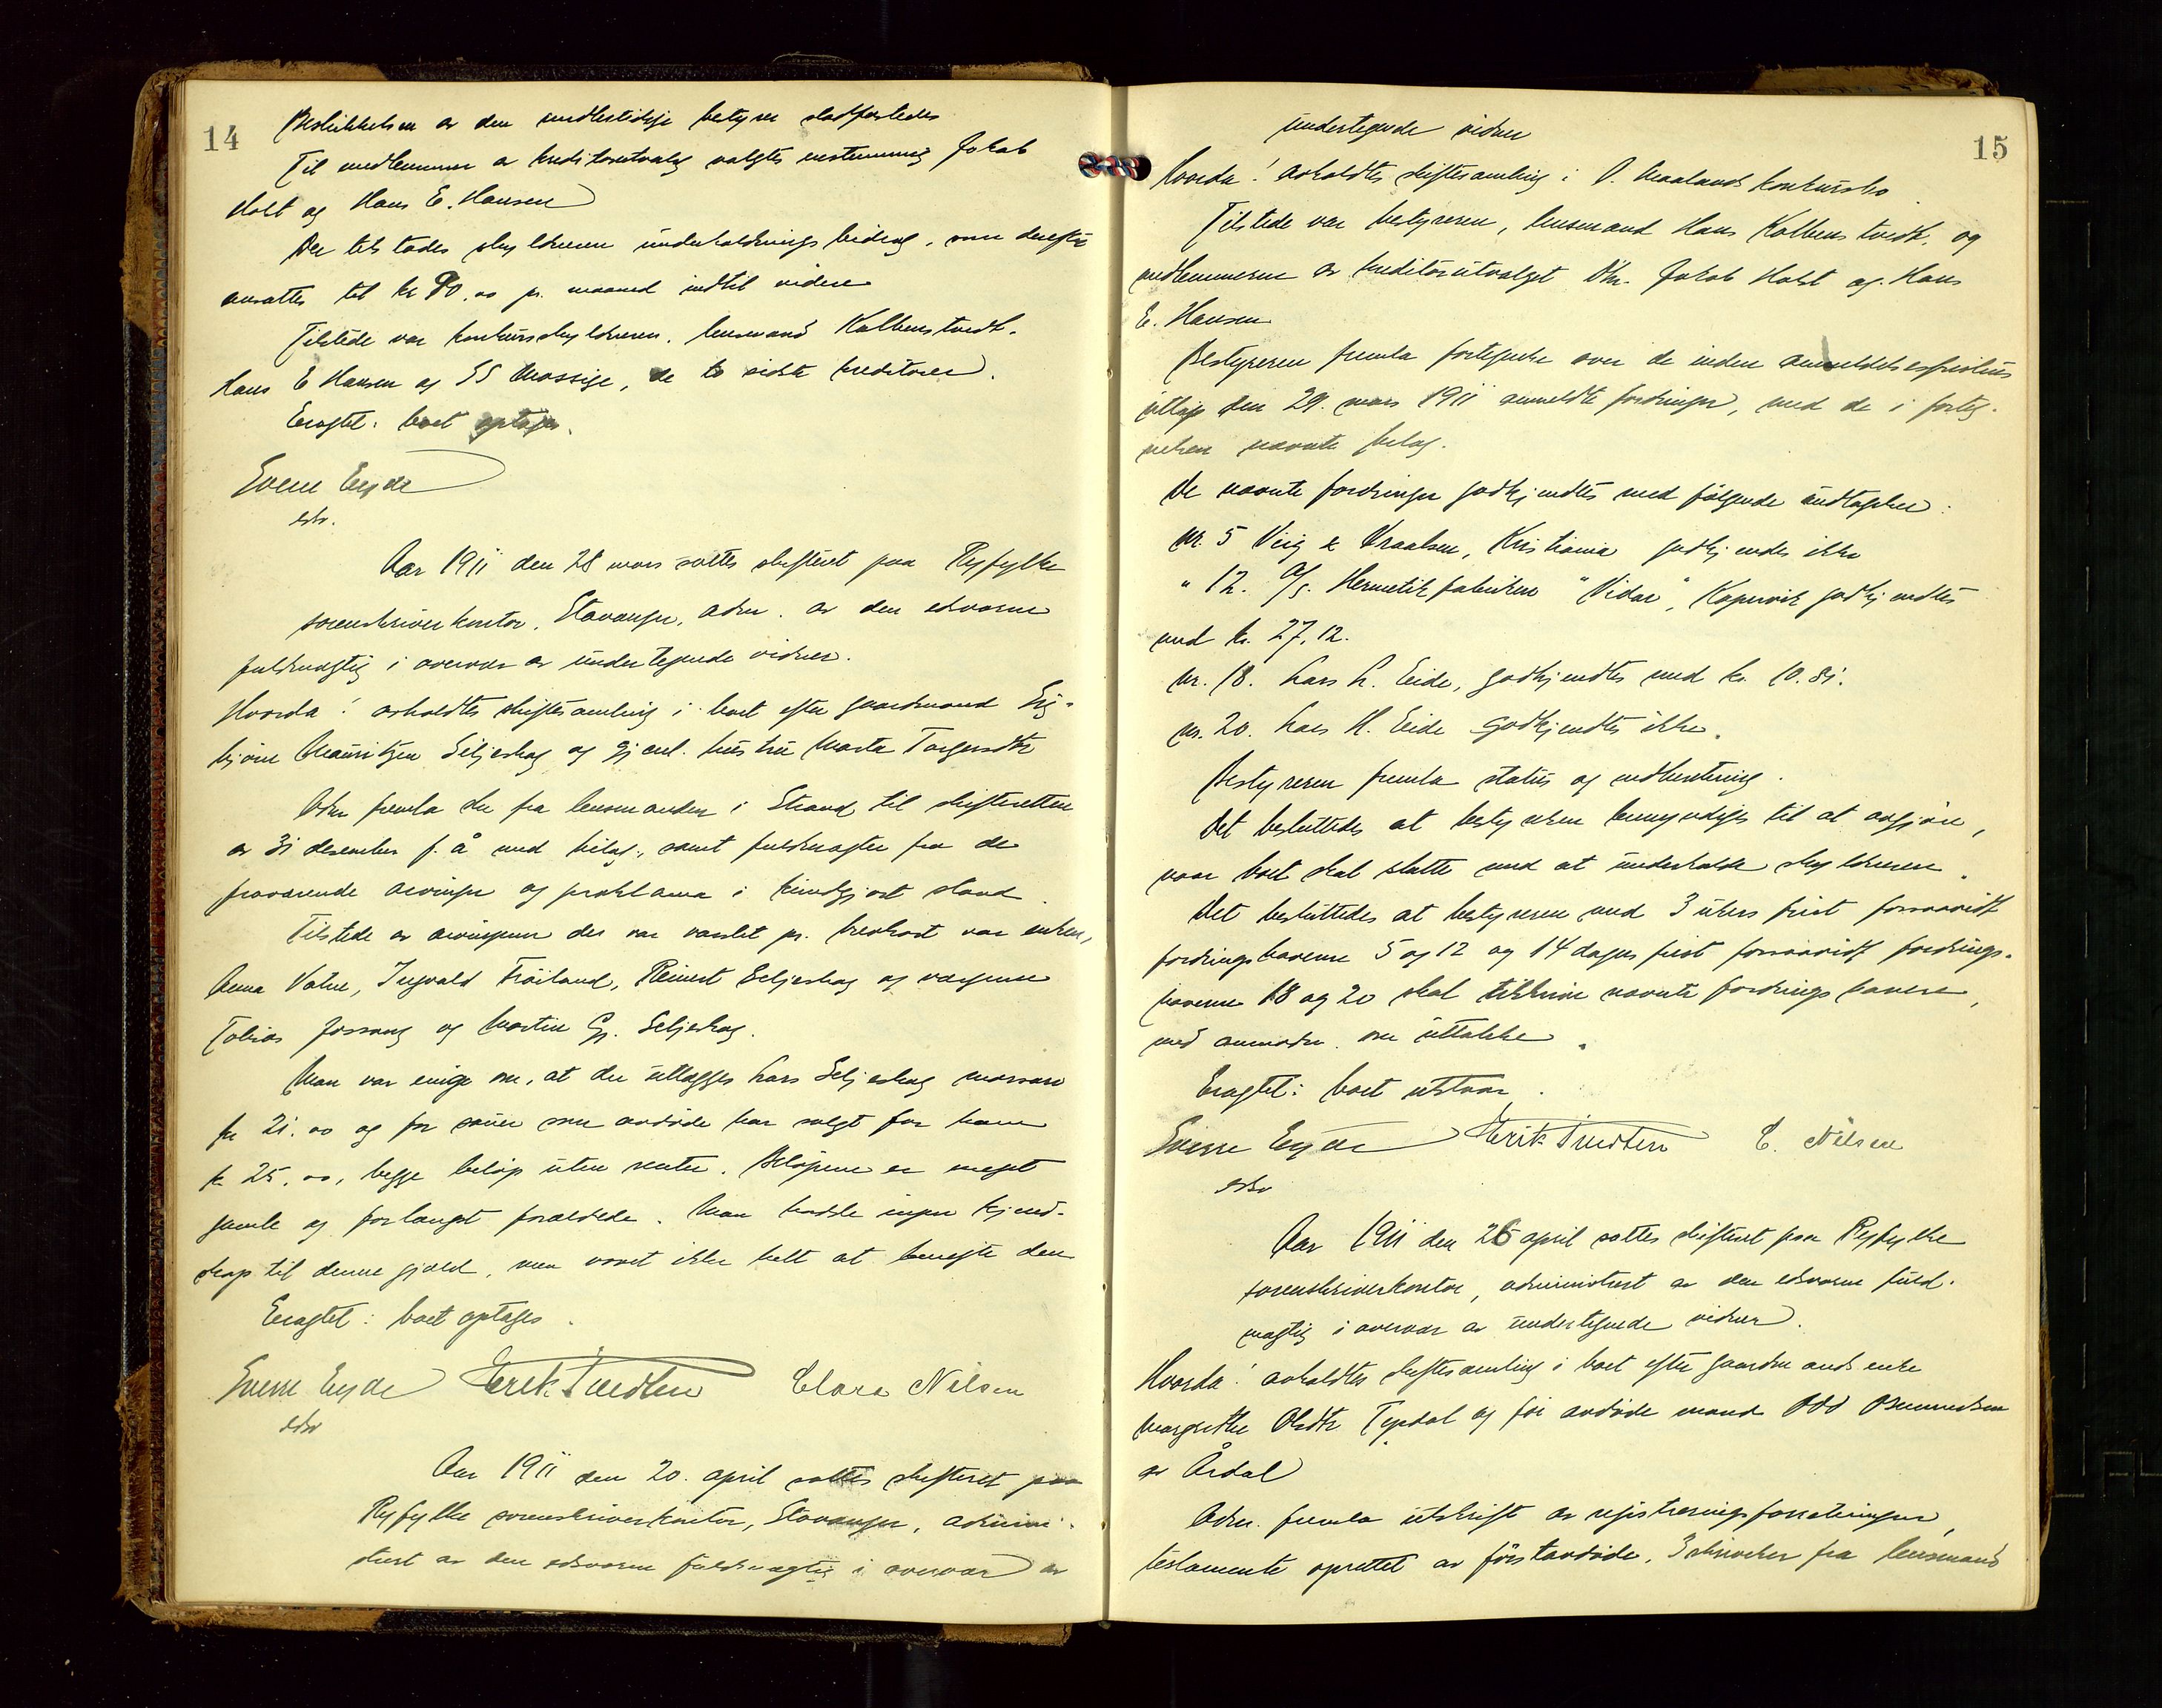 14
Beskikkelsen av den midlertidige bestyrer stadfæstedes
Til medlemmer av kreditorutvalg valgtes enstemmig Jakob
Holst og Hans E. Hansen
Der tilstodes skyldneren underholdningsbidrag, som derefter
ansattes til kr 80.00 pr. maaned indtil videre
Tilstede var konkursskyldneren, lensmand Kolbenstvedt.
Hans E Hansen og SS Mossige, de to sidste kreditorer.
Eragtet: boet optages.
Sverre Eyde
edsv.
Aar 1911 den 28 mars sattes skifteret paa Ryfylke
sorenskriverkontor, Stavanger, adm. av den edsvorne
fuldmægtig i overvær av undertegnede vidner.
Hvorda! avholdtes skiftesamling i boet efter gaardmand Sig-
bjørn Mauritzen Seljeskog og gjenl. hustru Marta Torgersdtr
Adm fremla skr fra lensmanden i Strand til skifteretten
av 31 desember f. å med bilag, samt fuldmagter fra de
fraværende arvinger og proklama i kundgjort stand.
Tilstede av arvingerne der var varslet pr. brevkort var enken,
Anna Vatne, Ingvald Frøiland, Reinert Seljeskog og værgerne
Tobias Jossang og Martin Gj. Seljeskog.
Man var enige om, at der utlægges Lars Seljeskog
kr 21.00 og for sauer som avdøde har solgt for ham
kr 25.00, begge beløp uten renter. Beløpene er meget
gamle og forlængst forældede. Man hadde ingen kjend-
skap til denne gjæld, men vovet ikke helt at benegte den
Eragtet: boet optages.
Sverre Eyde Erik Tvedten Clara Nilsen
edsv
Aar 1911 den 20. april sattes skifteret paa
Ryfylke sorenskriverkontor, Stavanger, admini-
strert av den edsvorne fuldmægtig i overvær av
15
undertegnede vidner
Hvorda! avholdtes skiftesamling i O. Maalands konkursbo.
Tilstede var bestyreren, lensmand Hans Kolbenstvedt. og
medlemmerne av kreditorutvalget DHr. Jakob Holst og Hans
E. Hansen
Bestyreren fremla fortegnelse over de inden anmeldelsesfristens
utløp den 29. mars 1911 anmeldte fordringer, med de i forteg-
nelsen nævnte bilag.
De nævnte fordringer godkjendtes med følgende undtagelser:
Nr. 5 Veig & Kraalsen, Kristiania godkjendes ikke
" 12. A/S. Hermetikfabriken "Vidar", Kopervik godkjendtes
med kr. 27,12.
Nr. 18. Lars L. Eide, godkjendtes med kr. 10.81.
Nr. 20. Lars H. Eide godkjendtes ikke.
Bestyreren fremla status og indberetning.
Det besluttedes at bestyreren bemyndiges til at avgjøre,
naar boet skal slutte med at underholde skyldneren.
Det besluttedes at bestyreren med 3 ukers frist forsaavidt
fordringshaverne 5 og 12 og 14 dages frist forsaavidt fordrings-
haverne 18 og 20 skal tilskrive nævnte fordringshavere,
med anmodn. om uttalelse.
Eragtet: boet utstaar.
Sverre Eyde Erik Tvedten C. Nilsen
edsv
Aar 1911 den 26 april sattes skifteret paa Ryfylke
sorenskriverkontor, administrert av den edsvorne fuld-
mægtig i overvær av undertegnede vidner.
Hvorda! avholdtes skiftesamling i boet efter gaardmandsenke
Margrethe Olsdtr Tysdal og før avdøde mand Odd Osmundsen
av Årdal
Adm. fremla utskrift av registreringsforretningen,
testamente oprettet av førstavdøde, 3 skrivelser fra lensmand